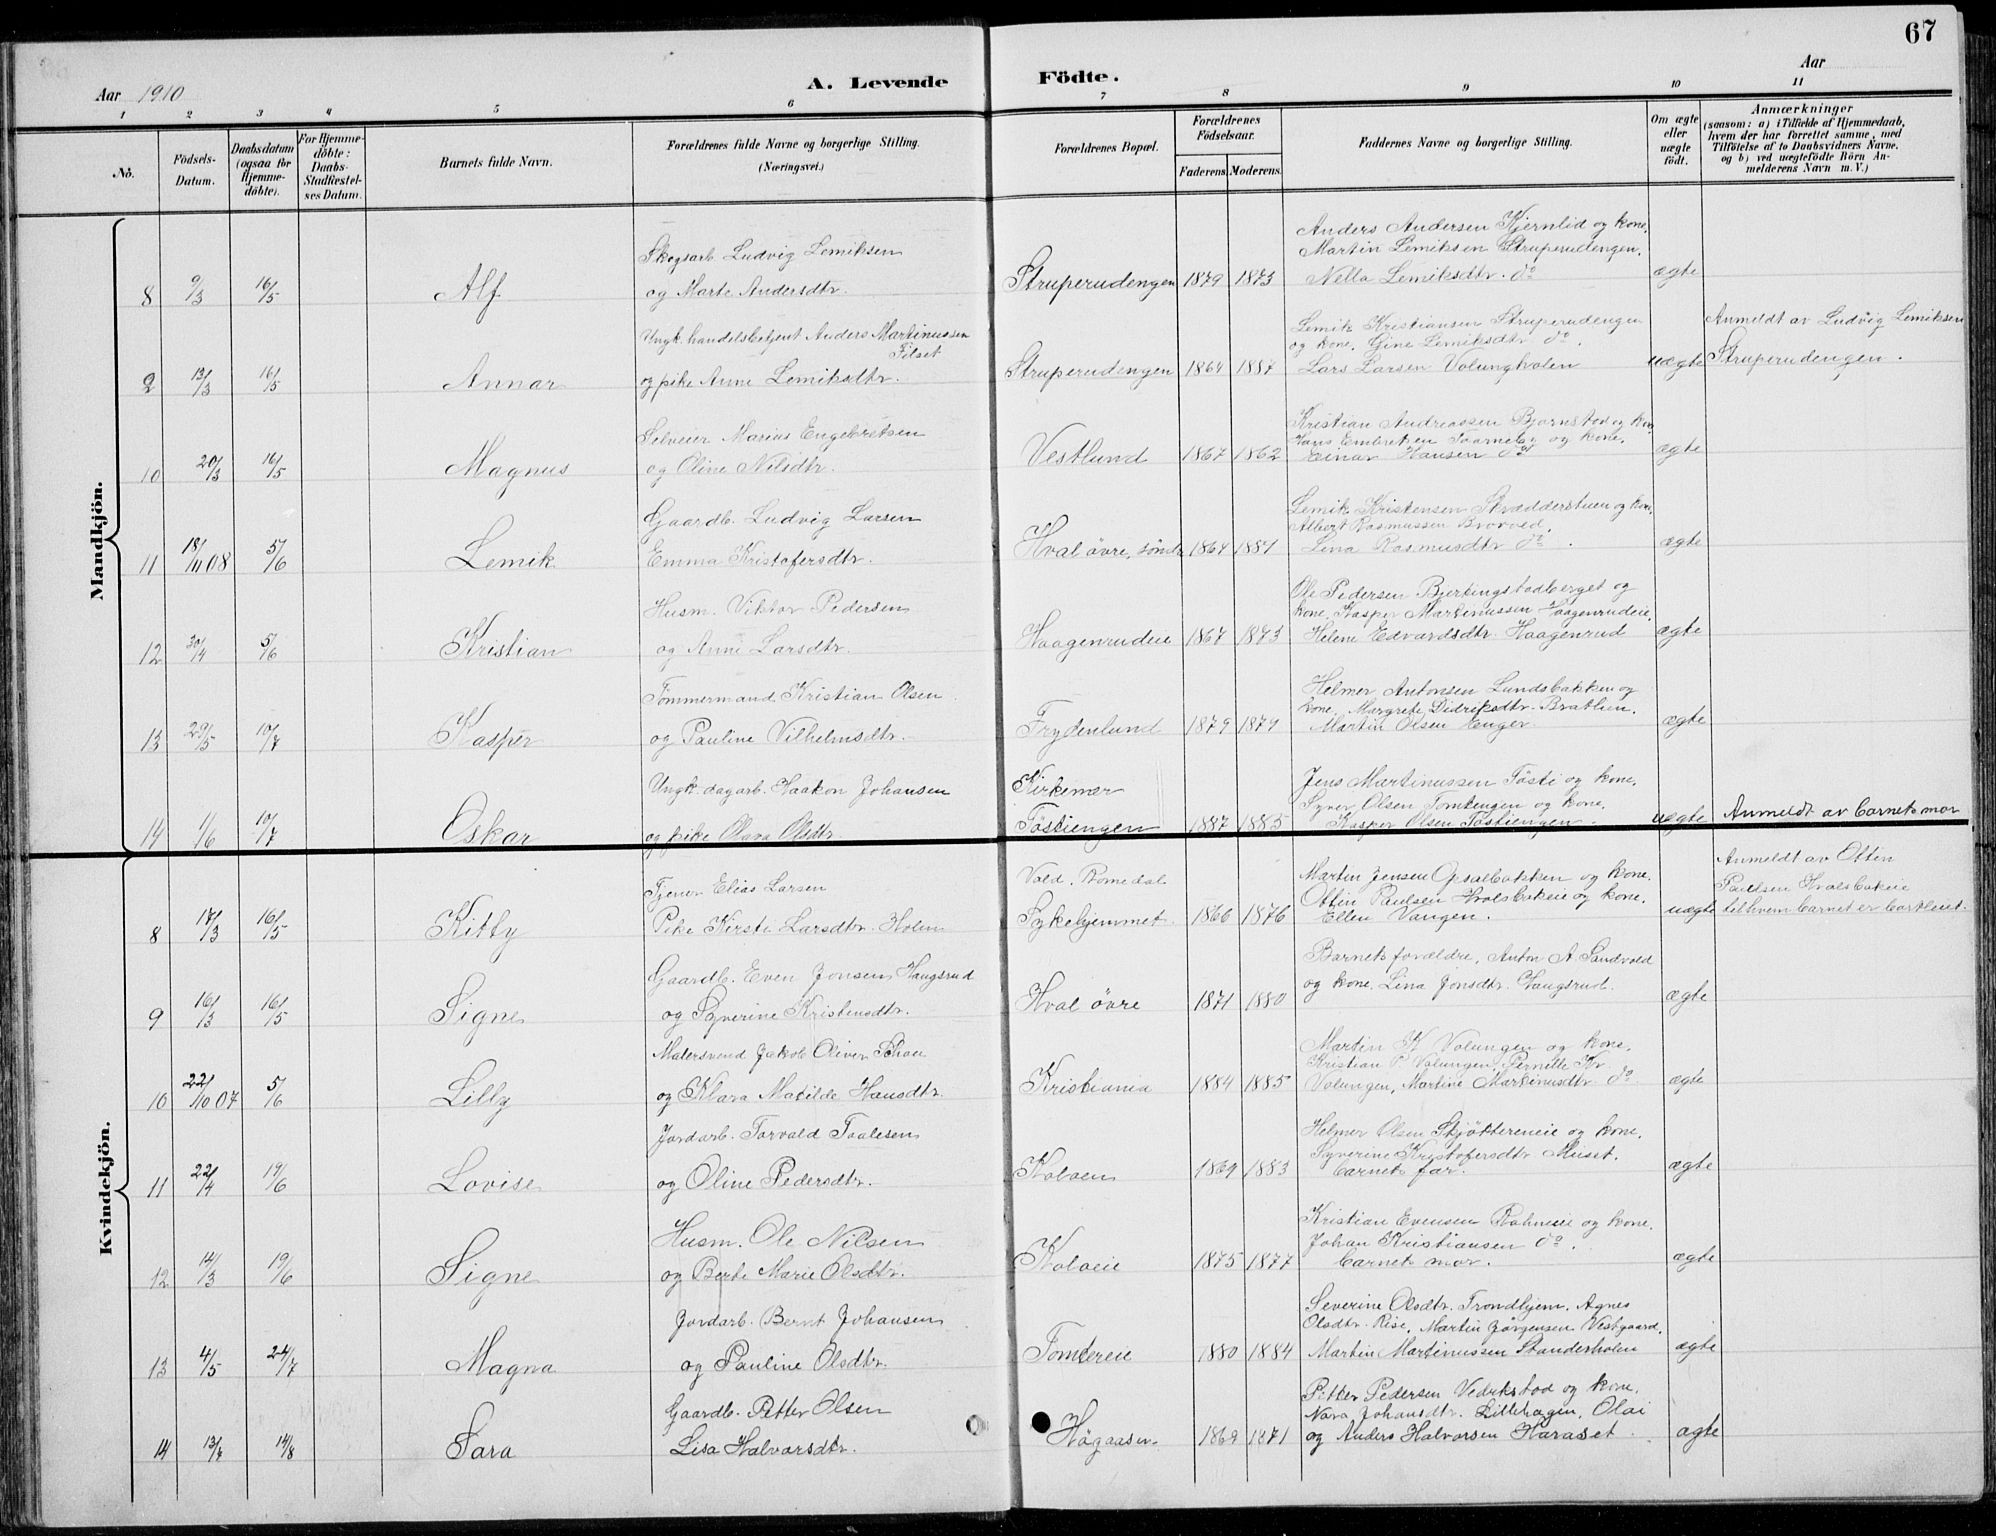 67
Aar 1910
A. Levende Födte.
Aar
1 2 3 4 5 6 7 8 9 10 11
No.
Födsels-Datum.
Daabsdatum (ogsaa for Hjemme-döbte).
For Hjemme-döbte: Daabs-Stadfæstel-ses Datum.
Barnets fulde Navn.
Forældrenes fulde Navne og borgerlige Stilling. (Næringsvei.)
Forældrenes Bopæl.
Forældrenes Födselsaar.
Faderens. Moderens.
Faddernes Navne og borgerlige Stilling.
Om ægte eller uægte födt.
Anmærkninger
(saasom: a) i Tilfælde af Hjemmedaab,
hvem der har forrettet samme, med
Tilföielse af to Daabsvidners Navne,
og b) ved uægtefödte Börn An-
melderens Navn m. V.)
Mandkjön.
Skogsarb. Ludvig Lemiksen
Anders Andersen Kjernlid og kone.
Martin Lemiksen Struperudengen.
8 9/3 16/5 Alf og Marte Andersdtr. Struperudengen 1879 1873 Nella Lemiksdtr. do ægte
Ungk. handelsbetjent Anders Martinussen
Tilset
Lemik Kristiansen Struperudengen
og kone. Gine Lemiksdtr do.
Anmeldt av Ludvig Lemiksen
9 13/3 16/5 Annar og pike Anne Lemiksdtr. Struperudengen 1864 1887 Lars Larsen Volungholen uægte Struperudengen.
Selveier Marius Engebretsen
Kristian Andreassen Bjørnstad og kone
Hans Embretsen Taarneby og kone.
10 20/3 16/5 Magnus og Oline Nilsdtr. Vestlund 1867 1862 Einar Hansen do ægte
Gaardb. Ludvig Larsen
Lemik Kristensen Skrædderstuen og kone.
Albert Rasmussen Brovold.
11 18/11 08 5/6 Lemik Emma Kristofersdtr. Hval övre, søndre 1864 1881 Lina Rasmusdtr do. ægte
Husm. Viktor Pedersen
Ole Pedersen Bjertingstadberget og
kone, Kasper Martinussen Haagenrudeie,
12 30/4 5/6 Kristian og Anne Larsdtr. Haagenrudeie 1867 1873 Helene Edvardsdtr. Haagenrud ægte
Tömmermand Kristian Olsen
Helmer Antonsen Lundsbakken og
kone, Margrete Didriksdtr. Bratlien.
13 29/5 10/7 Kasper og Pauline Vilhelmsdtr. Frydenlund 1879 1879 Martin Olsen Enger ægte
Ungk. dagarb. Haakon Johansen
Kirkemær
Jens Martinussen Töste og kone.
Syver Olsen Tomtengen og kone.
14 1/6 10/7 Oskar og pike Olava Olsdtr. Töstiengen 1887 1885 Kasper Olsen Töstiengen. uægte Anmeldt av barnets mor
Kvindekjön.
Tjener Elias Larsen
Vald. Romedal
Martin Jensen Opsalbakken og kone.
Ottin Paulsen Hvalsbakeie og kone.
Anmeldt av Otten
Paulsen Hvalsbakeie
8 17/3 16/5 Kitty Pike Kirsti Larsdtr. Holm Sykehjemmet 1866 1876 Ellen Vangen. uægte til hvem barnet er bortleiet.
Gaardb. Even Jonsen Haugsrud
Barnets forældre, Anton A Sandvold
9 16/3 16/5 Signe og Syverine Kristensdtr. Hval övre 1871 1880 og kone. Lina Jonsdtr. Haugsrud. ægte
Malersvend Jakob Oliver Schau
Martin K Volungen og kone.
Kristian P. Volungen, Pernille Kr
10 22/10 07 5/6 Lilly og Klara Matilde Hansdtr. Kristiania 1884 1885 Volungen, Martine Martinusdtr. do ægte
Jordarb. Torvald Taalesen
Helmer Olsen Skjøttereneie og kone.
Syverine Kristofersdtr Miset.
11 22/4 19/6 Lovise og Oline Pedersdtr. Koloen 1869 1883 barnets far. ægte
Husm. Ole Nilsen
Kristian Evensen Rohneie og kone.
Johan Kristiansen do.
12 14/3 19/6 Signe og Berte Marie Olsdtr. Koloeie 1875 1877 barnets mor. ægte
Jordarb. Bernt Johansen
Severine Olsdtr. Trondhjem, Agnes
Olsdtr. Rise, Martin Jörgensen Vestgaard.
13 4/5 24/7 Magna og Pauline Olsdtr. Tomtereie 1880 1884 Martin Martinussen Standerholen ægte
Gaardb. Petter Olsen
Petter Pedersen Vedrkstad og kone.
Nora Johansdtr. Lillehagen, Olai
14 13/7 14/8 Sara Lisa Halvorsdtr. Högaasen. 1869 1871 og Anders Halvorsen Haraset. ægte